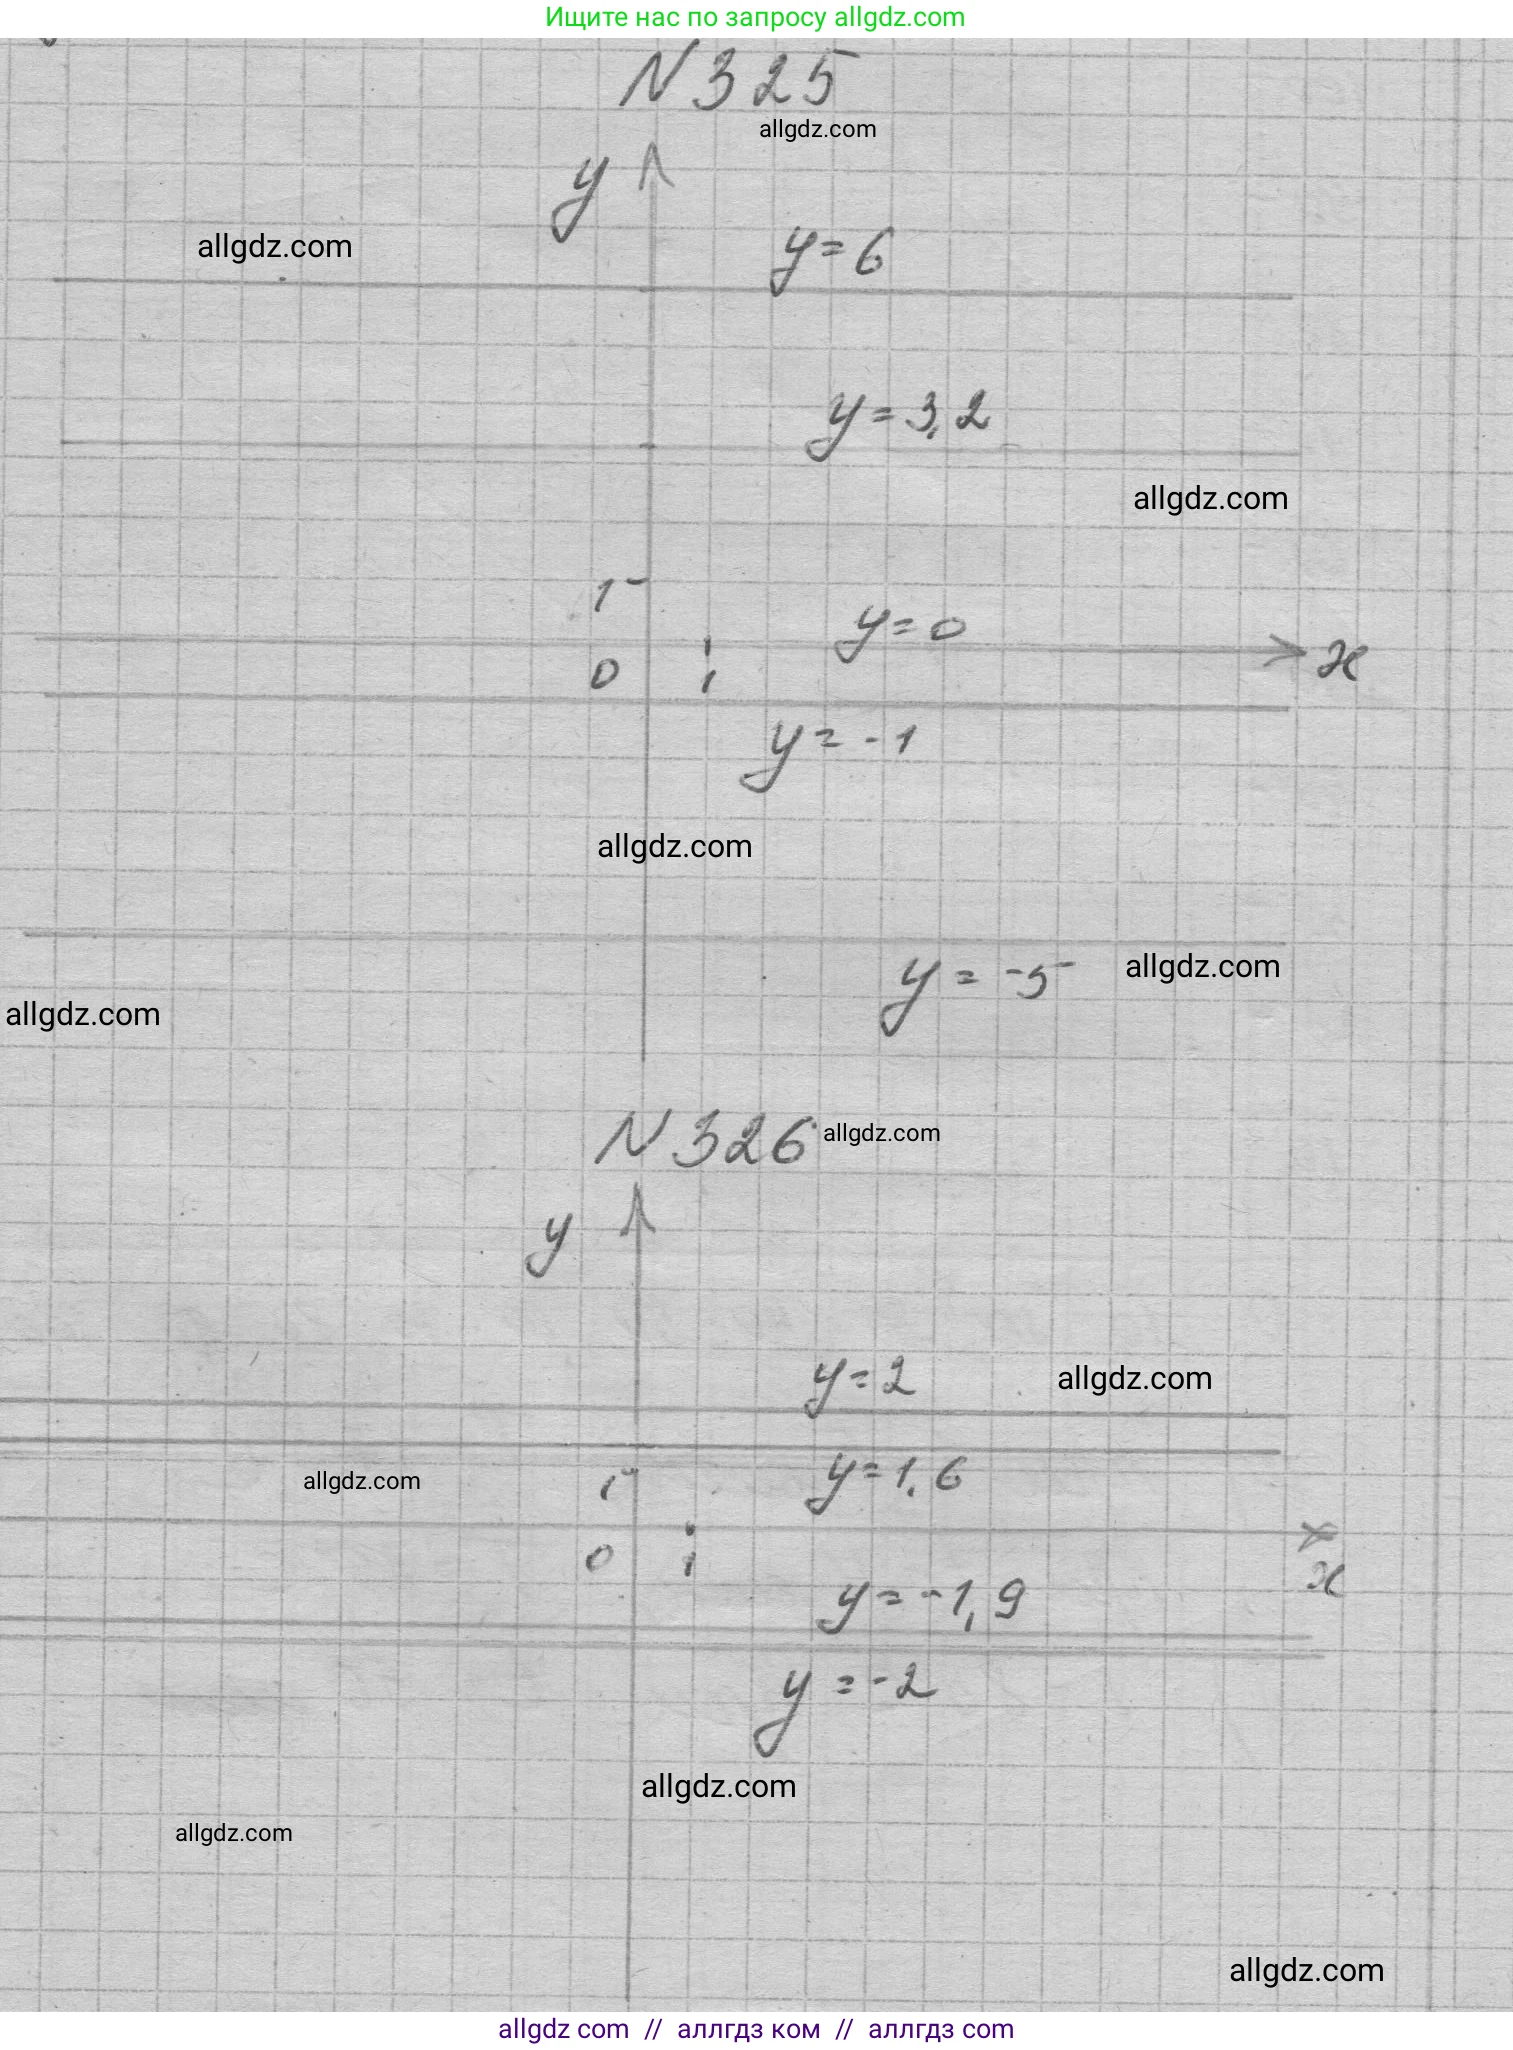 Ищите нас по запросу allgdz.com
N 325
allgdz.com
y
allgdz.com
y = 6
y = 3,2
allgdz.com
1
y = 0
0
1
x
y = -1
allgdz.com
y = -5
allgdz.com
allgdz.com
N 326
allgdz.com
y
y = 2
allgdz.com
y = 1,6
allgdz.com
1
0
1
x
y = -1,9
y = -2
allgdz.com
allgdz.com
allgdz.com
allgdz com // аллгдз ком // аллгдз com